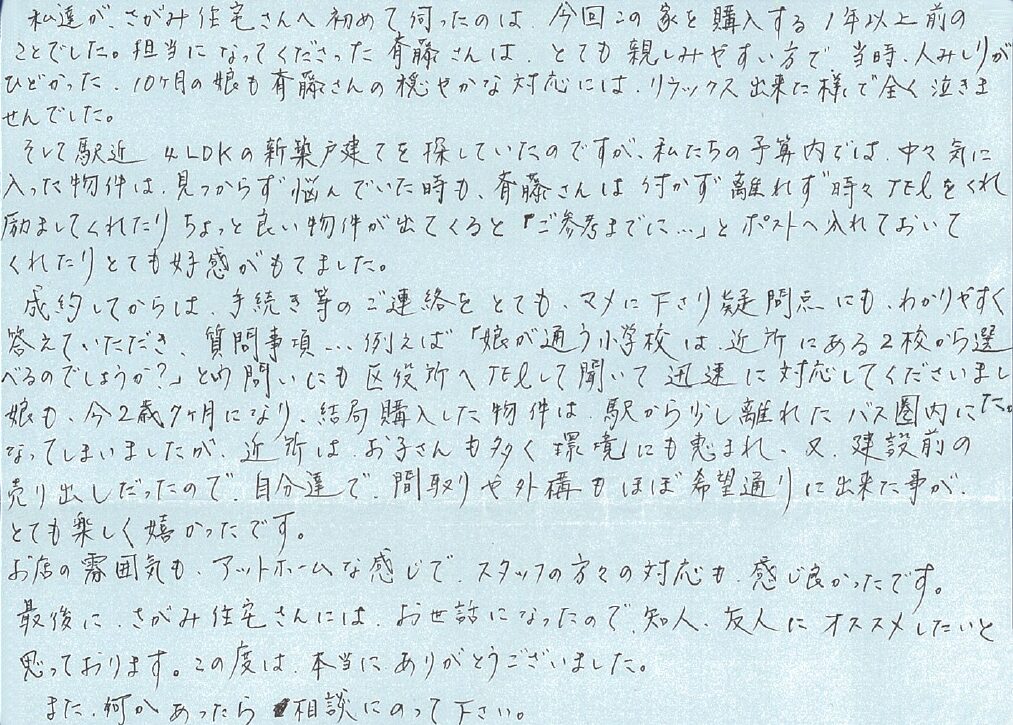 私達が、さがみ住宅さんへ初めて伺ったのは、今回この家を購入する1年以上前の
ことでした。担当になってくださった斉藤さんは、とても親しみやすい方で、当時、人みしりが
ひどかった、10ヶ月の娘も斉藤さんの穏やかな対応には、リラックス出来た様で全く泣きま
せんでした。
そして駅近 4LDKの新築戸建てを探していたのですが、私たちの予算内では、中々気に
入った物件は、見つからず悩んでいた時も、斉藤さんは付かず離れず時々TELをくれ
励ましてくれたりちょっと良い物件が出てくると「ご参考までに…」とポストへ入れておいて
くれたりとても好感がもてました。
成約してからは、手続き等のご連絡をとても、マメに下さり疑問点にも、わかりやすく
答えていただき、質問事項…例えば「娘が通う小学校は、近所にある2校から選
べるのでしょうか?」という問いにも区役所へTELして聞いて迅速に対応してくださいました。
娘も、今2歳7ヶ月になり、結局購入した物件は、駅から少し離れたバス圏内に
なってしまいましたが、近所は、お子さんも多く環境にも恵まれ、又、建設前の
売り出しだったので、自分達で、間取りや外構もほぼ希望通りに出来た事が、
とても楽しく嬉かったです。
お店の雰囲気も、アットホームな感じで、スタッフの方々の対応も、感じ良かったです。
最後に、さがみ住宅さんには、お世話になったので、知人、友人にオススメしたいと
思っております。この度は、本当にありがとうございました。
また、何かあったら相談にのって下さい。